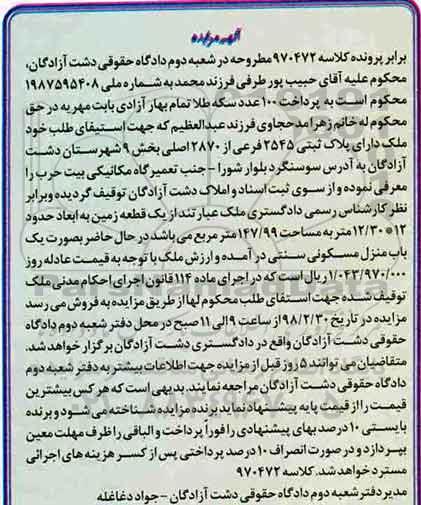 آگهی مزایده
برابر پرونده کلاسه ۹۷۰۴۷۲ مطروحه در شعبه دوم دادگاه حقوقی دشت آزادگان،
محکوم علیه آقای حبیب پور طرفی فرزند محمد به شماره ملی ۱۹۸۷۵۹۵۴۰۸
محکوم است به پرداخت ۱۰۰ عدد سکه طلا تمام بهار آزادی بابت مهریه در حق
محکوم له خانم زهرا مدحجاوی فرزند عبدالعظیم که جهت استیفای طلب خود
ملک دارای پلاک ثبتی ۲۵۴۵ فرعی از ۲۸۷۰ اصلی بخش ۹ شهرستان دشت
آزادگان به آدرس سوسنگرد بلوار شورا - جنب تعمیرگاه مکانیکی بیت حرب را
معرفی نموده و از سوی ثبت اسناد و املاک دشت آزادگان توقیف گردیده وبرابر
نظر کارشناس رسمی دادگستری ملک عبارتند از یک قطعه زمین به ابعاد حدود
۱۲ * ۱۲/۳۰ متر به مساحت ۱۴۷/۹۹ متر مربع می باشد در حال حاضر بصورت یک
باب منزل مسکونی سنتی در آمده و ارزش ملک با توجه به قیمت عادله روز
۱/۰۴۳/۹۷۰/۰۰۰ ریال است که در اجرای ماده ۱۱۴ قانون اجرای احکام مدنی ملک
توقیف شده جهت استفای طلب محکوم لها از طریق مزایده به فروش می رسد
مزایده در تاریخ ۹۸/۲/۳۰ از ساعت ۹ الی ۱۱ صبح در محل دفتر شعبه دوم دادگاه
حقوقی دشت آزادگان واقع در دادگستری دشت آزادگان برگزار خواهد شد.
متقاضیان می توانند ۵ روز قبل از مزایده جهت اطلاعات بیشتر به دفتر شعبه دوم
دادگاه حقوقی دشت آزادگان مراجعه نمایند. بدیهی است که هر کس بیشترین
قیمت را از قیمت پایه پیشنهاد نماید برنده مزایده شناخته می شود و برنده
بایستی ۱۰ درصد بهای پیشنهادی را فوراً پرداخت و الباقی را ظرف مهلت معین
بپردازد و در صورت انصراف ۱۰ درصد پرداختی پس از کسر هزینه های اجرائی
مسترد خواهد شد. کلاسه ۹۷۰۴۷۲
مدیر دفتر شعبه دوم دادگاه حقوقی دشت آزادگان - جواد دغاغله